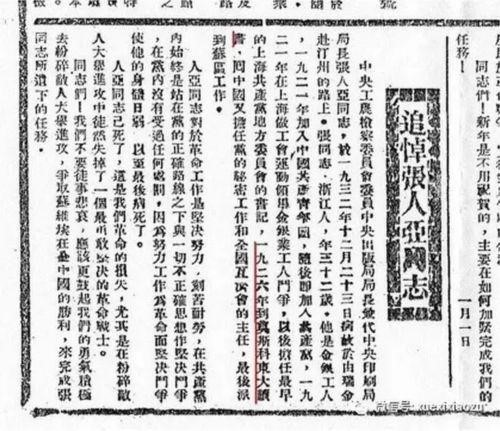 同志們！新年是不用祝賀的，主要在如何加緊完成我們的
任務！
一月一日
追悼張人亞同志
中央工農檢察委員會委員中央出版局局長兼代中央印刷局
局長張人亞同志，於一九三二年十二月二十三日病故於由瑞金
赴汀州的路上。張同志，浙江人，年三十二歲。他是金銀工人
，一九二一年加入中國共產青年團，隨後卽加入共產黨，一九
二一年在上海做工會運動領導金銀業工人鬥爭，以後擔任最早
的上海共產黨地方委員會的書記，一九二六年到莫斯科東大讀
書，囘中國又擔任黨的秘密工作和全國互濟會的主任，最後派
到蘇區工作。
人亞同志對於革命工作是堅決努力，刻苦耐勞，在共產黨
內始終是站在黨的正確路線之下與一切不正確思想作堅決鬥爭
，在黨內沒有受過任何處罰，因為努力工作為革命而堅決鬥爭
使他的身體日弱，以至最後病死了。
人亞同志已死了，這是我們革命的損失，尤其是在粉碎敵
人大舉進攻中徒然失掉了一個最勇敢堅決的革命戰士。
同志們！我們不要徒事悲哀，應該更鼓起我們的勇氣積極
去粉碎敵人大舉進攻，爭取蘇維埃在全中國的勝利，來完成張
同志所遺下的任務。
微信号: xuexixiaozu